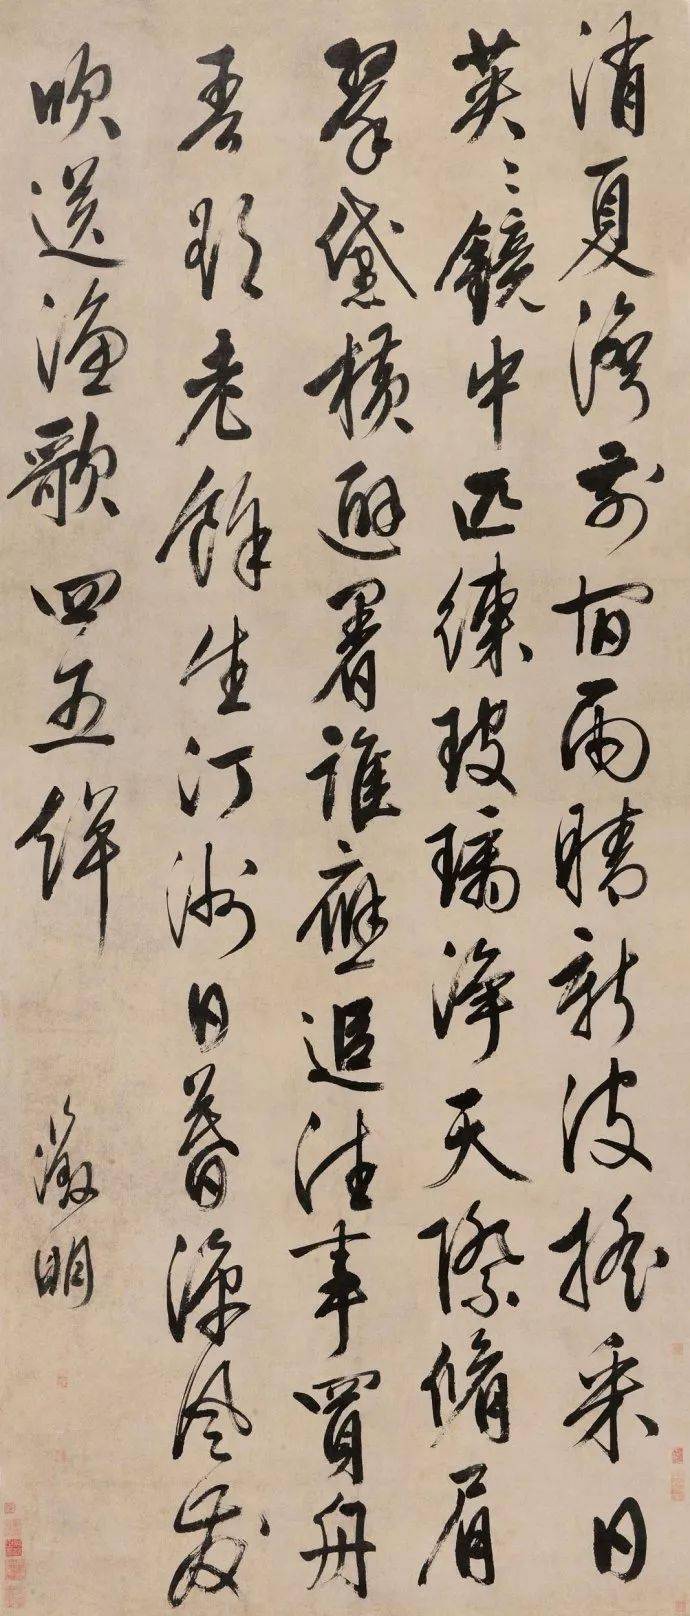 消夏灣前宿雨晴新波搖采日
英〻鏡中匹練玻璃淨天際脩眉
翠黛橫避暑誰應追往事買舟
吾欲老餘生汀洲日暮涼風發
吹送漁歌四五聲
徵明